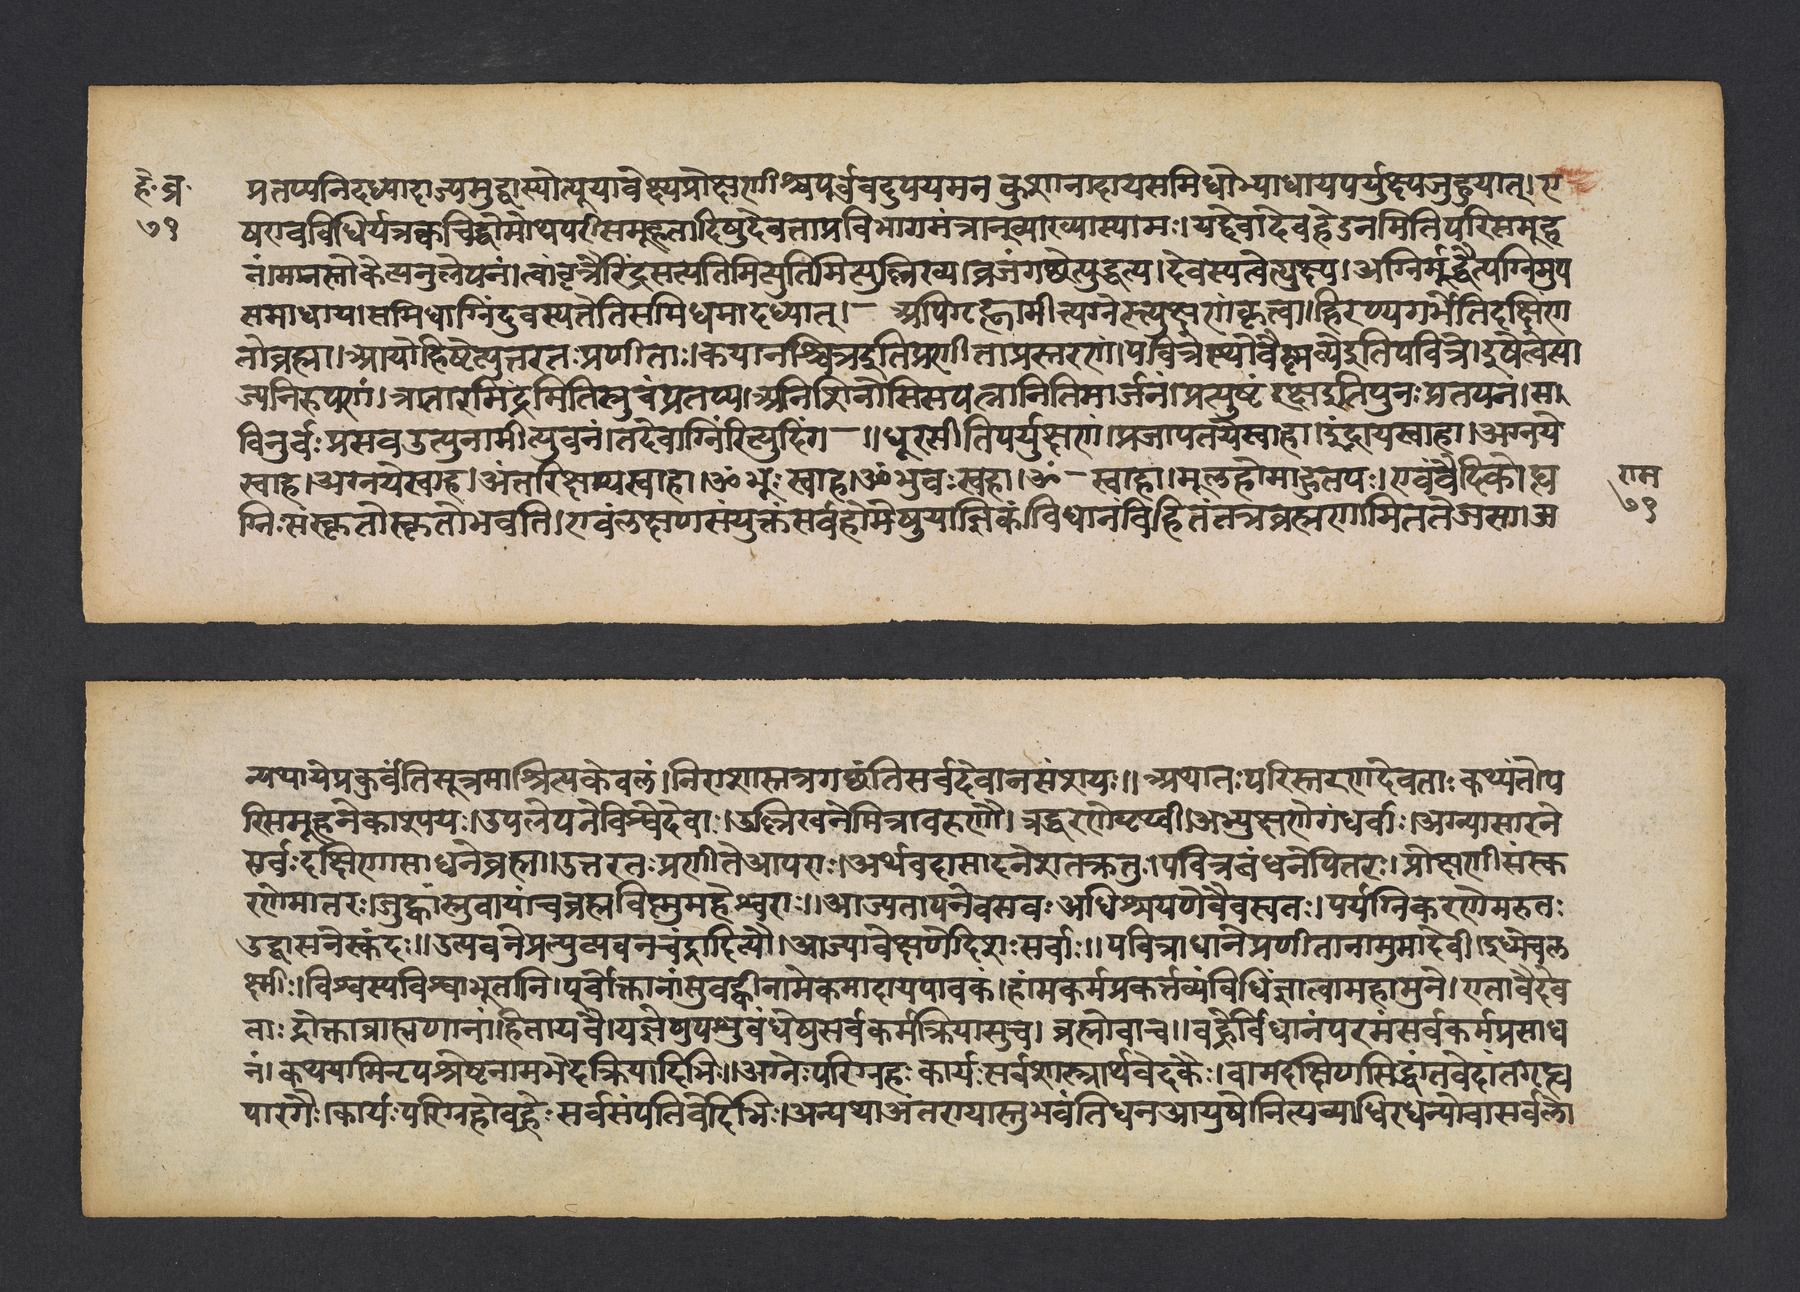 हे. व्र.
७१
प्रतप्यनिदध्यादाज्यमुद्वास्योत्पूयावेक्ष्यप्रोक्षणीश्चपूर्ववदुपयमन कुशानादायसमिधोभ्याधायपर्युक्ष्यजुहुयात्। ए
षएवविधिर्यत्रक्वचिद्धोमोथपरीसमूहनादिषुदेवताप्रविभागमंत्रानुव्याख्यास्यामः। यद्देवादेवहेडनमितिपरिसमूह
नं। मानस्तोकेत्यनुलेपनं। त्वांवृत्रैरिंद्रसत्पतिमित्युल्लिख्य। व्रजंगच्छेत्युद्धृत्य। देवस्यत्वेत्युक्ष्य। अग्निर्मूर्द्धेत्यग्निमुप
समाधाय। समिधाग्निंदुवस्यतेतिसमिधमादध्यात्।– अपिगृह्णामीत्यग्नेस्त्युक्षणंकृत्वा। हिरण्यगर्भेतिदक्षिण
तोब्रह्मा। आपोहिष्टेत्युत्तरतःप्रणीताः। कयानश्चित्रइतिप्रणीताप्रस्तरणं। पवित्रेस्थोवैष्णव्येइतिपवित्रे। इषेत्वेत्या
ज्यनिरूपणं। त्रातारमिंद्रमितिस्रुचंप्रतप्य। अनिशितोसिसपत्नानितिमार्जनं। प्रत्युष्टंरक्षइतिपुनःप्रतपनं। सा
वितुर्वःप्रसवउत्पुनामीत्युवनं। तदेवाग्निंरित्युदिंग–॥ धूरसीतिपर्युक्षणं। प्रजापतयेस्वाहा। इंद्रायस्वाहा। अग्नये
स्वाहा। अग्नयेस्वाहा। अंतरिक्षायस्वाहा। ॐभूःस्वाहा। ॐभुवःस्वहा। ॐ–स्वाहा। मूलहोमाहुतयः। एवंवैदिकोह्य
ग्निःसंस्कृतोस्कृतोभवति। एवंलक्षणसंयुक्तंसर्वहोमेषुयाज्ञिकं। विधानविहितंतत्रब्रह्मणामिततेजसा। अ
राम
७१
न्यथायेप्रकुर्वंतिसूत्रमाश्रित्यकेवलं। निराशास्तत्रगछंतिसर्वदेवानसंशयः॥ अथातःपरिस्तरणदेवताःकथ्यंतेप
रिसमूहनेकाश्यपः। उपलेपनेविश्वेदेवाः। उल्लिखनेमित्रावरुणौ। उद्धरणेपृथ्वी। अभ्युक्षणेगंधर्वाः। अग्न्यासारने
सर्वःदक्षिणासाधनेब्रह्मा। उत्तरतःप्रणीतेआपराः। अर्थवदासादनेशतक्रतु। पवित्रबंधनेपितरः। प्रोक्षणीसंस्क
रणेमातरः। जुह्वांस्रुवायांचब्रह्मविष्णुमहेश्वराः॥ आज्यतापनेवसवःअधिश्रयणेवैवस्वतः। पर्यग्निकरणेमरुतः
उद्वासनेस्कंदः॥ उत्पवनेप्रत्युत्पवनचंद्रादित्यौ। आज्यावेक्षणेदिशःसर्वाः॥ पवित्राधानेप्रणीतानामुमादेवी। इध्मेचल
क्ष्मीः। विश्वस्यविश्वाभूतानि। पूर्वोक्तानांतुवह्नीनामेकमादायपावकं। हांमकर्मप्रकर्त्तव्यंविधिंज्ञात्वामहामुने। एतावैदेव
ताःप्रोक्ताब्राह्मणानां। हितायवै। यज्ञेषुपशुबंधेषुसर्वकर्मक्रियासुच। ब्रह्मोवाच॥ वह्नेर्विधानंपरमंसर्वकर्मप्रसाध
नं। कथयामिनृपश्रेष्टनामभेदक्रियादिभिः॥ अग्नेःपरिग्रहःकार्यःसर्वशास्त्रार्थवेदकैः। वामदक्षिणसिद्धांतवेदांतगृह्य
पारगैः। कार्यःपरिग्रहोवह्नेःसर्वसंपतिवेदिभिः। अन्यथाअंतरायास्तुभवंतिधनआयुषेनित्यव्याधिरधन्योवासर्वलो